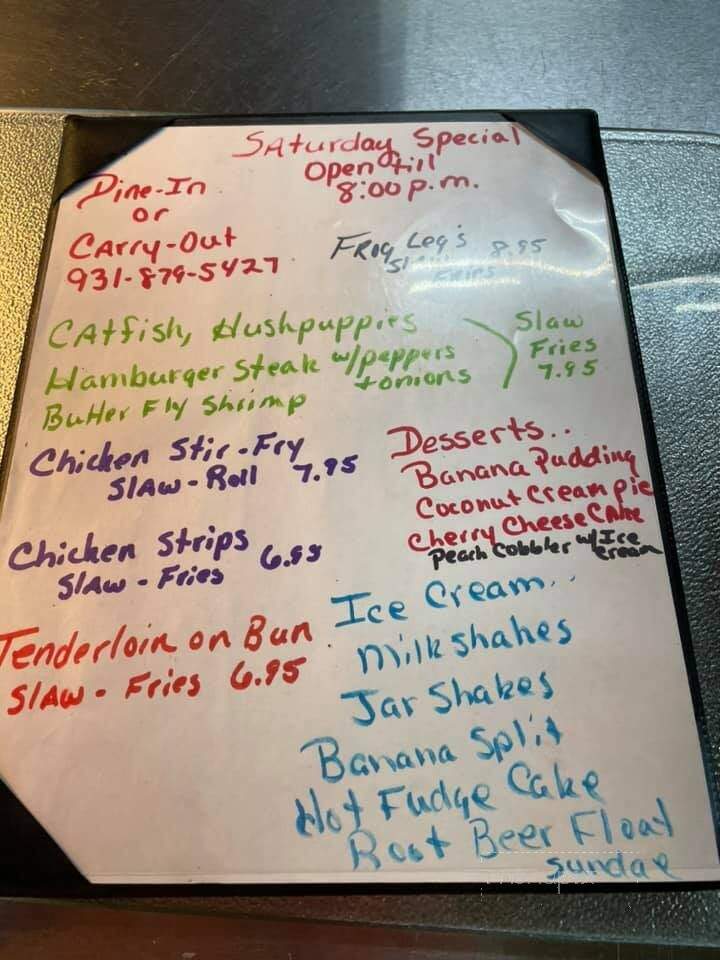 SAturday Special
Open till
8:00 p.m.
Dine-In
or
CArry-Out
931-879-5427
FROg Leg's 8.95
Sl
Fries
CAtfish, Hushpuppies
Hamburger Steak w/peppers
+onions
Butter Fly Shrimp
Slaw
Fries
7.95
Chicken Stir-Fry
SlAw - Roll 7.95
Chicken Strips
SlAw - Fries
Tenderloin on Bun
SlAw - Fries 6.95
Desserts..
Banana Pudding
Coconut Cream pie
Cherry Cheese CAke
Peach Cobbler w/Ice
Cream
Ice Cream..
Milkshakes
Jar Shakes
Banana Split
Hot Fudge Cake
Root Beer Float
sundae